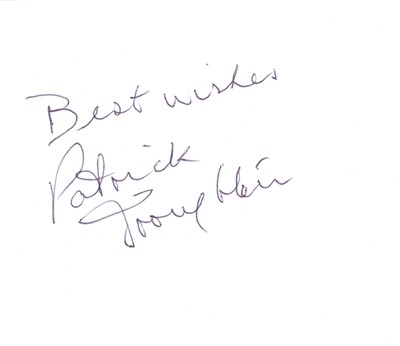 Best wishes
Patrick
Troughton